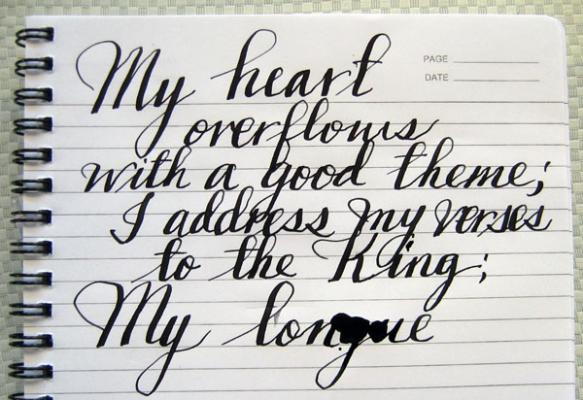 PAGE
DATE
My heart
overflows
with a good theme;
I address my verses
to the King;
My tongue